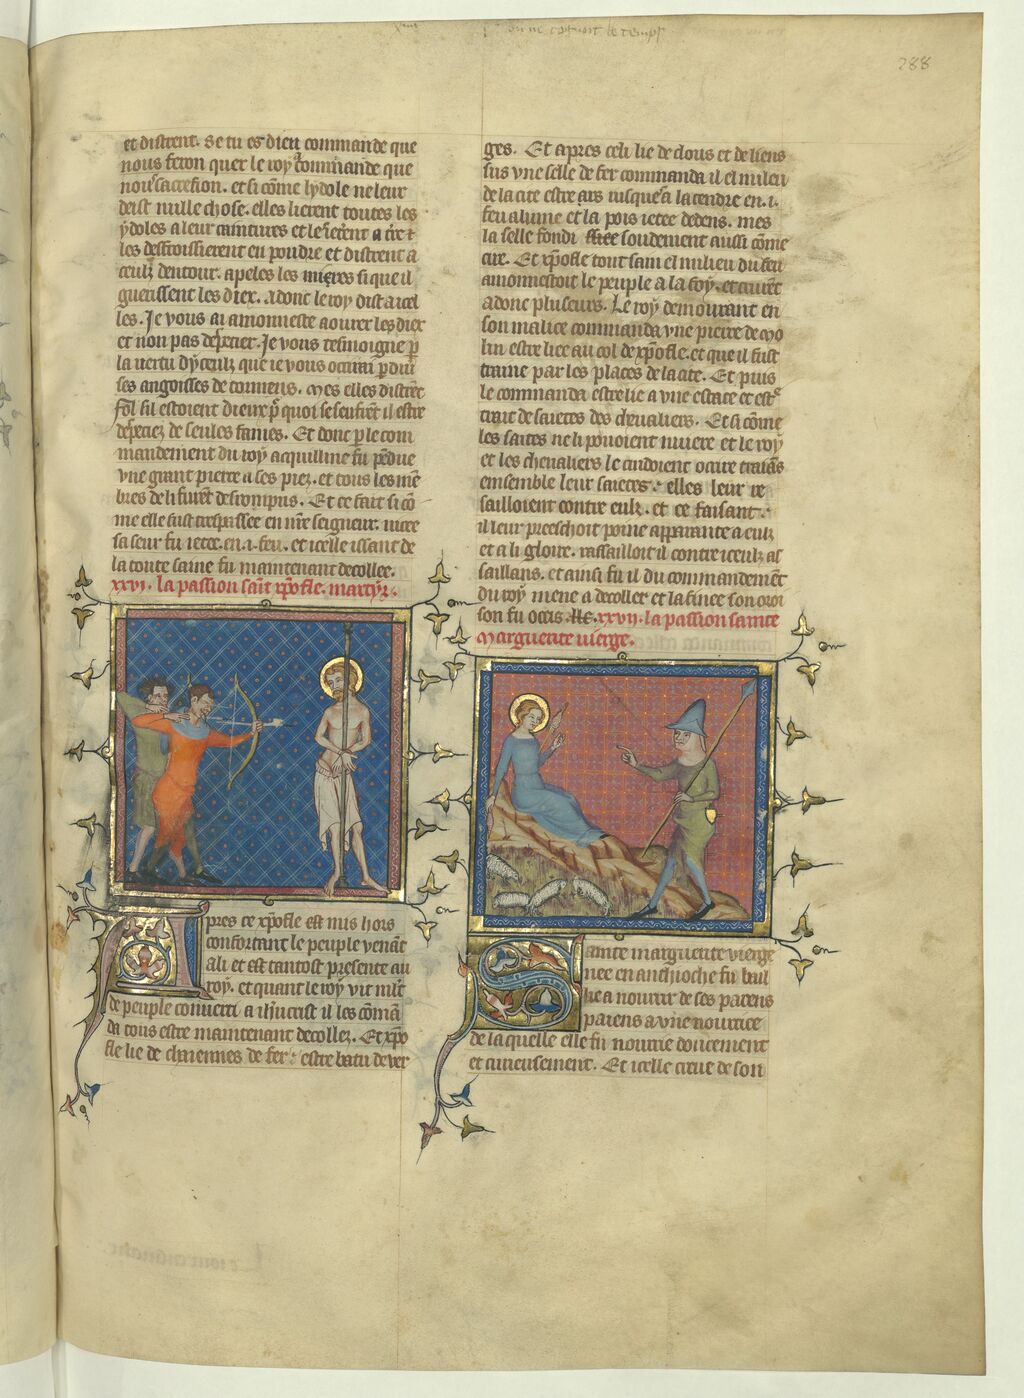 288
et distrent. Se tu es dieu commande que
nous feron quer le roy commande que
nous sacrefion. et si cõme lydole ne leur
deist nulle chose. elles lierent toutes les
ydoles a leur caintures et le
les desfroissierent en poudre et distrent a
ceulz dentour. apeles les mieres si que il
guerissent les diex. adonc le roy dist a icel
les. Je vous ai amonneste aourer les diex
et non pas depecier. Je vous tesmoigne p̃
la vertu dyceulz que ie vous occirai p̃ diu̾
ses angoisses de tormens. Mes elles distrẽt
fol sil estoient dieux p̃ quoi se seufrẽt il estre
depeciez de seules fames. Et donc p̃ le com
mandement du roy acquilline fu pẽdue
vne grant pierre a ses piez. et tous les mẽ
bres de li furẽt desrompus. Et ce fait si cõ
me elle fust trespassee en nr̃e seigneur. nicee
sa seur fu ietee. en .i. feu. et icelle issant de
la toute saine fu maintenant decollee.
xxvi. la passion saĩt xp̃ofle. martyr.
Apres ce xp̃ofle est mis hors
confortant le peuple venãt
a li et est tantost presente au
roy. et quant le roy vit mlt̃
de peuple conuerti a ih̃ucrist il les cõman
da tous estre maintenant decollez. Et xp̃o
fle lie de chaiennes de fer: estre batu de ver
ges. Et apres celi lie de clous et de liens
sus vne selle de fer commanda il el milieu
de la cite estre ars iusquẽs a la cendre en .i.
feu alume et la pois ietee dedens. mes
la selle fondi soudement aussi cõme
cire. Et xp̃ofle tout sain el milieu du feu
amonnestoit le peuple a la foy. et crurẽt
adonc pluseurs. Le roy demourant en
son malice commanda vne pierre de mo
lin estre liee au col de xp̃ofle. et que il fust
traine par les places de la cite. Et puis
le commanda estre lie a vne estace et estˀ
trait de saietes des cheualiers. Et si cõme
les saites ne li pouoient nuiere et le roy
et les cheualiers le cuidoient ocirre traiãs
ensemble leur saietes: elles leur re
sailloient contre eulz. et ce faisant:
il leur preeschoit poine apparante a eulz
et a li gloire. rassailloit il contre iceulz as
saillans. et ainsi fu il du commandemẽt
du roy mene a decoller et la finee son oroi
son fu ocis. xxvii. la passion sainte
Marguerite vierge.
Sainte marguerite vierge
nee en anthioche fu bail
lie a nourrir de ses parens
paiens a vne nourrice
de la quelle elle fu nourrie doucement
et curieusement. Et icelle creue de son